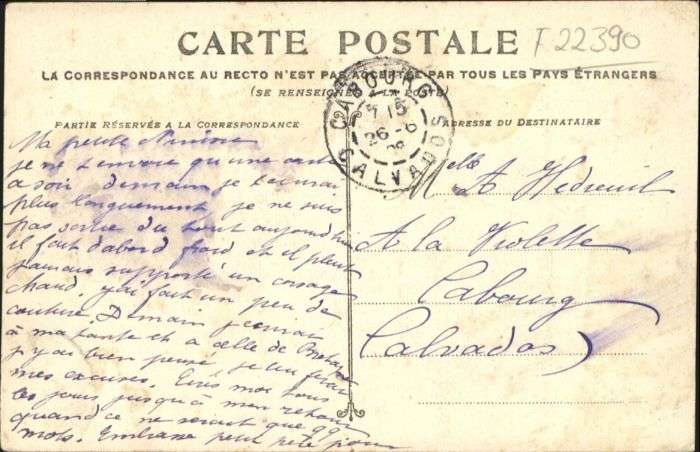 F 22390
CARTE POSTALE
LA CORRESPONDANCE AU RECTO N'EST PAS ACCEPTÉE PAR TOUS LES PAYS ÉTRANGERS
(SE RENSEIGNER A LA POSTE)
PARTIE RÉSERVÉE A LA CORRESPONDANCE
ADRESSE DU DESTINATAIRE
CABOURG
7 15
26 - 6
CALVADOS
Ma petite
je ne t'envoie qu'une carte
ce soir demain je t'ecrirai
plus longuement je ne suis
pas sortie du tout aujourd'hui
il fait d'abord froid et il pleut
jamais supporté un corsage
chaud. j'ai fait un peu de
couture. Demain j'ecrirai
à ma tante et à celle de
j'y ai bien pensé je leur ferai
mes excuses. Ecris moi tous
les jours jusqu'à mon retour
quand ce ne serait que 99
mots. Embrasse petit père pour
Mlle A Hedreuil
A la Violette
Cabourg
Calvados